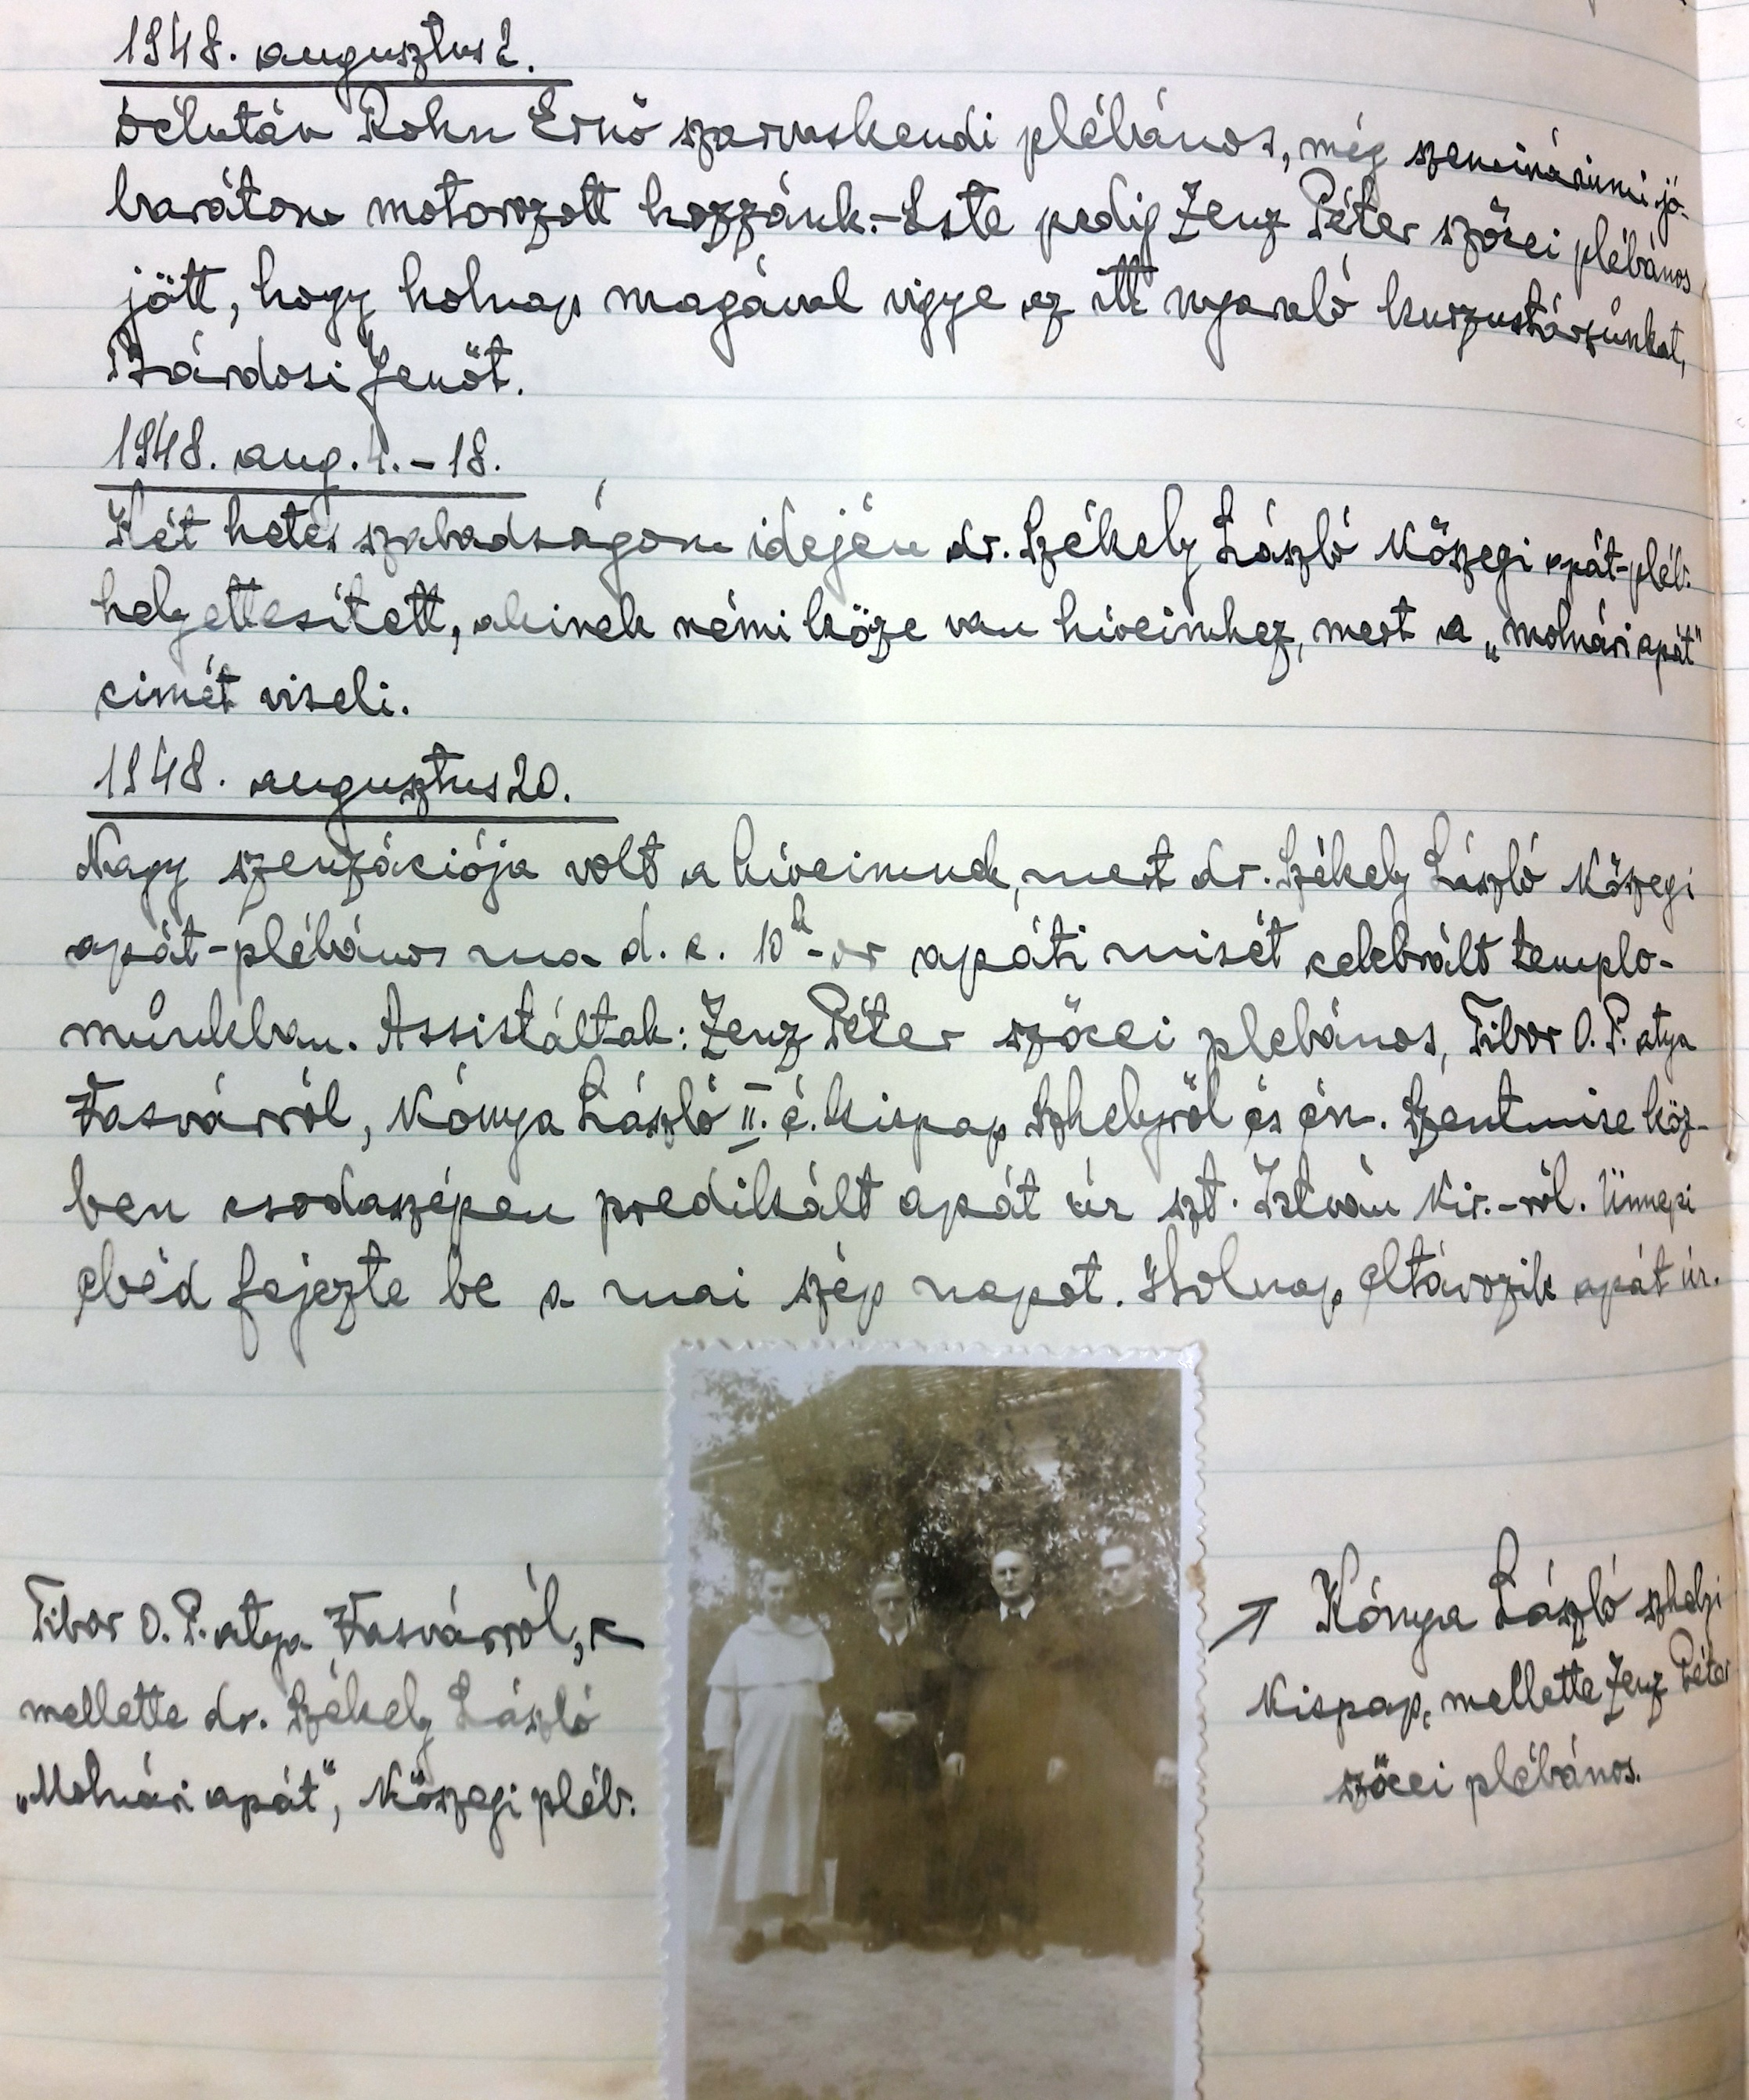 1948. augusztus 2.
Délután Rohn Ernő szarvaskendi plébános, még szemináriumi jó-
barátom motorozott hozzánk.- Este pedig Zenz Péter szőcei plébános
jött, hogy holnap magával vigye az itt nyaraló kurzustársunkat,
Bárdosi Jenőt.
1948. aug. 4. - 18.
Két hetes szabadságom idején dr. Székely László Kőszegi apát-pléb.
helyettesített, akinek némi köze van híveimhez, mert a „molnári apát"
cimét viseli.
1948. augusztus 20.
Nagy szenzációja volt a híveimnek, mert dr. Székely László Kőszegi
apát-plébános ma d. e. 10h-or apáti misét celebrált templo-
munkban. Assistáltak: Zenz Péter szőcei plebános, Tibor O. P. atya
Vasvárról, Kónya László II. é. kispap Szhelyről és én. Szentmise köz-
ben csodaszépen predikált apát úr szt. István Kir.-ról. Ünnepi
ebéd fejezte be a mai szép napot. Holnap eltávozik apát úr.
Tibor O. P. atya Vasvárról,
mellette dr. Székely László
„Molnári apát", Kőszegi pléb.
Kónya László szhelyi
Kispap, mellette Zenz Péter
szőcei plébános.